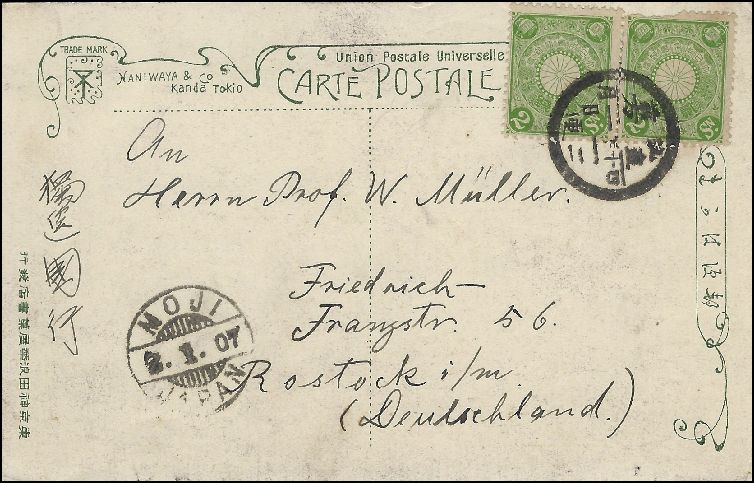 TRADE MARK
HANIWAYA & Co
Kanda Tokio
Union Postale Universelle
CARTE POSTALE
An
Herrn Prof. W. Müller.
Friedrich-
Franzstr. 56.
Rostock i/m.
(Deutschland.)
MOJI
2.1.07
JAPAN
東京神田浪華屋葉書店發行